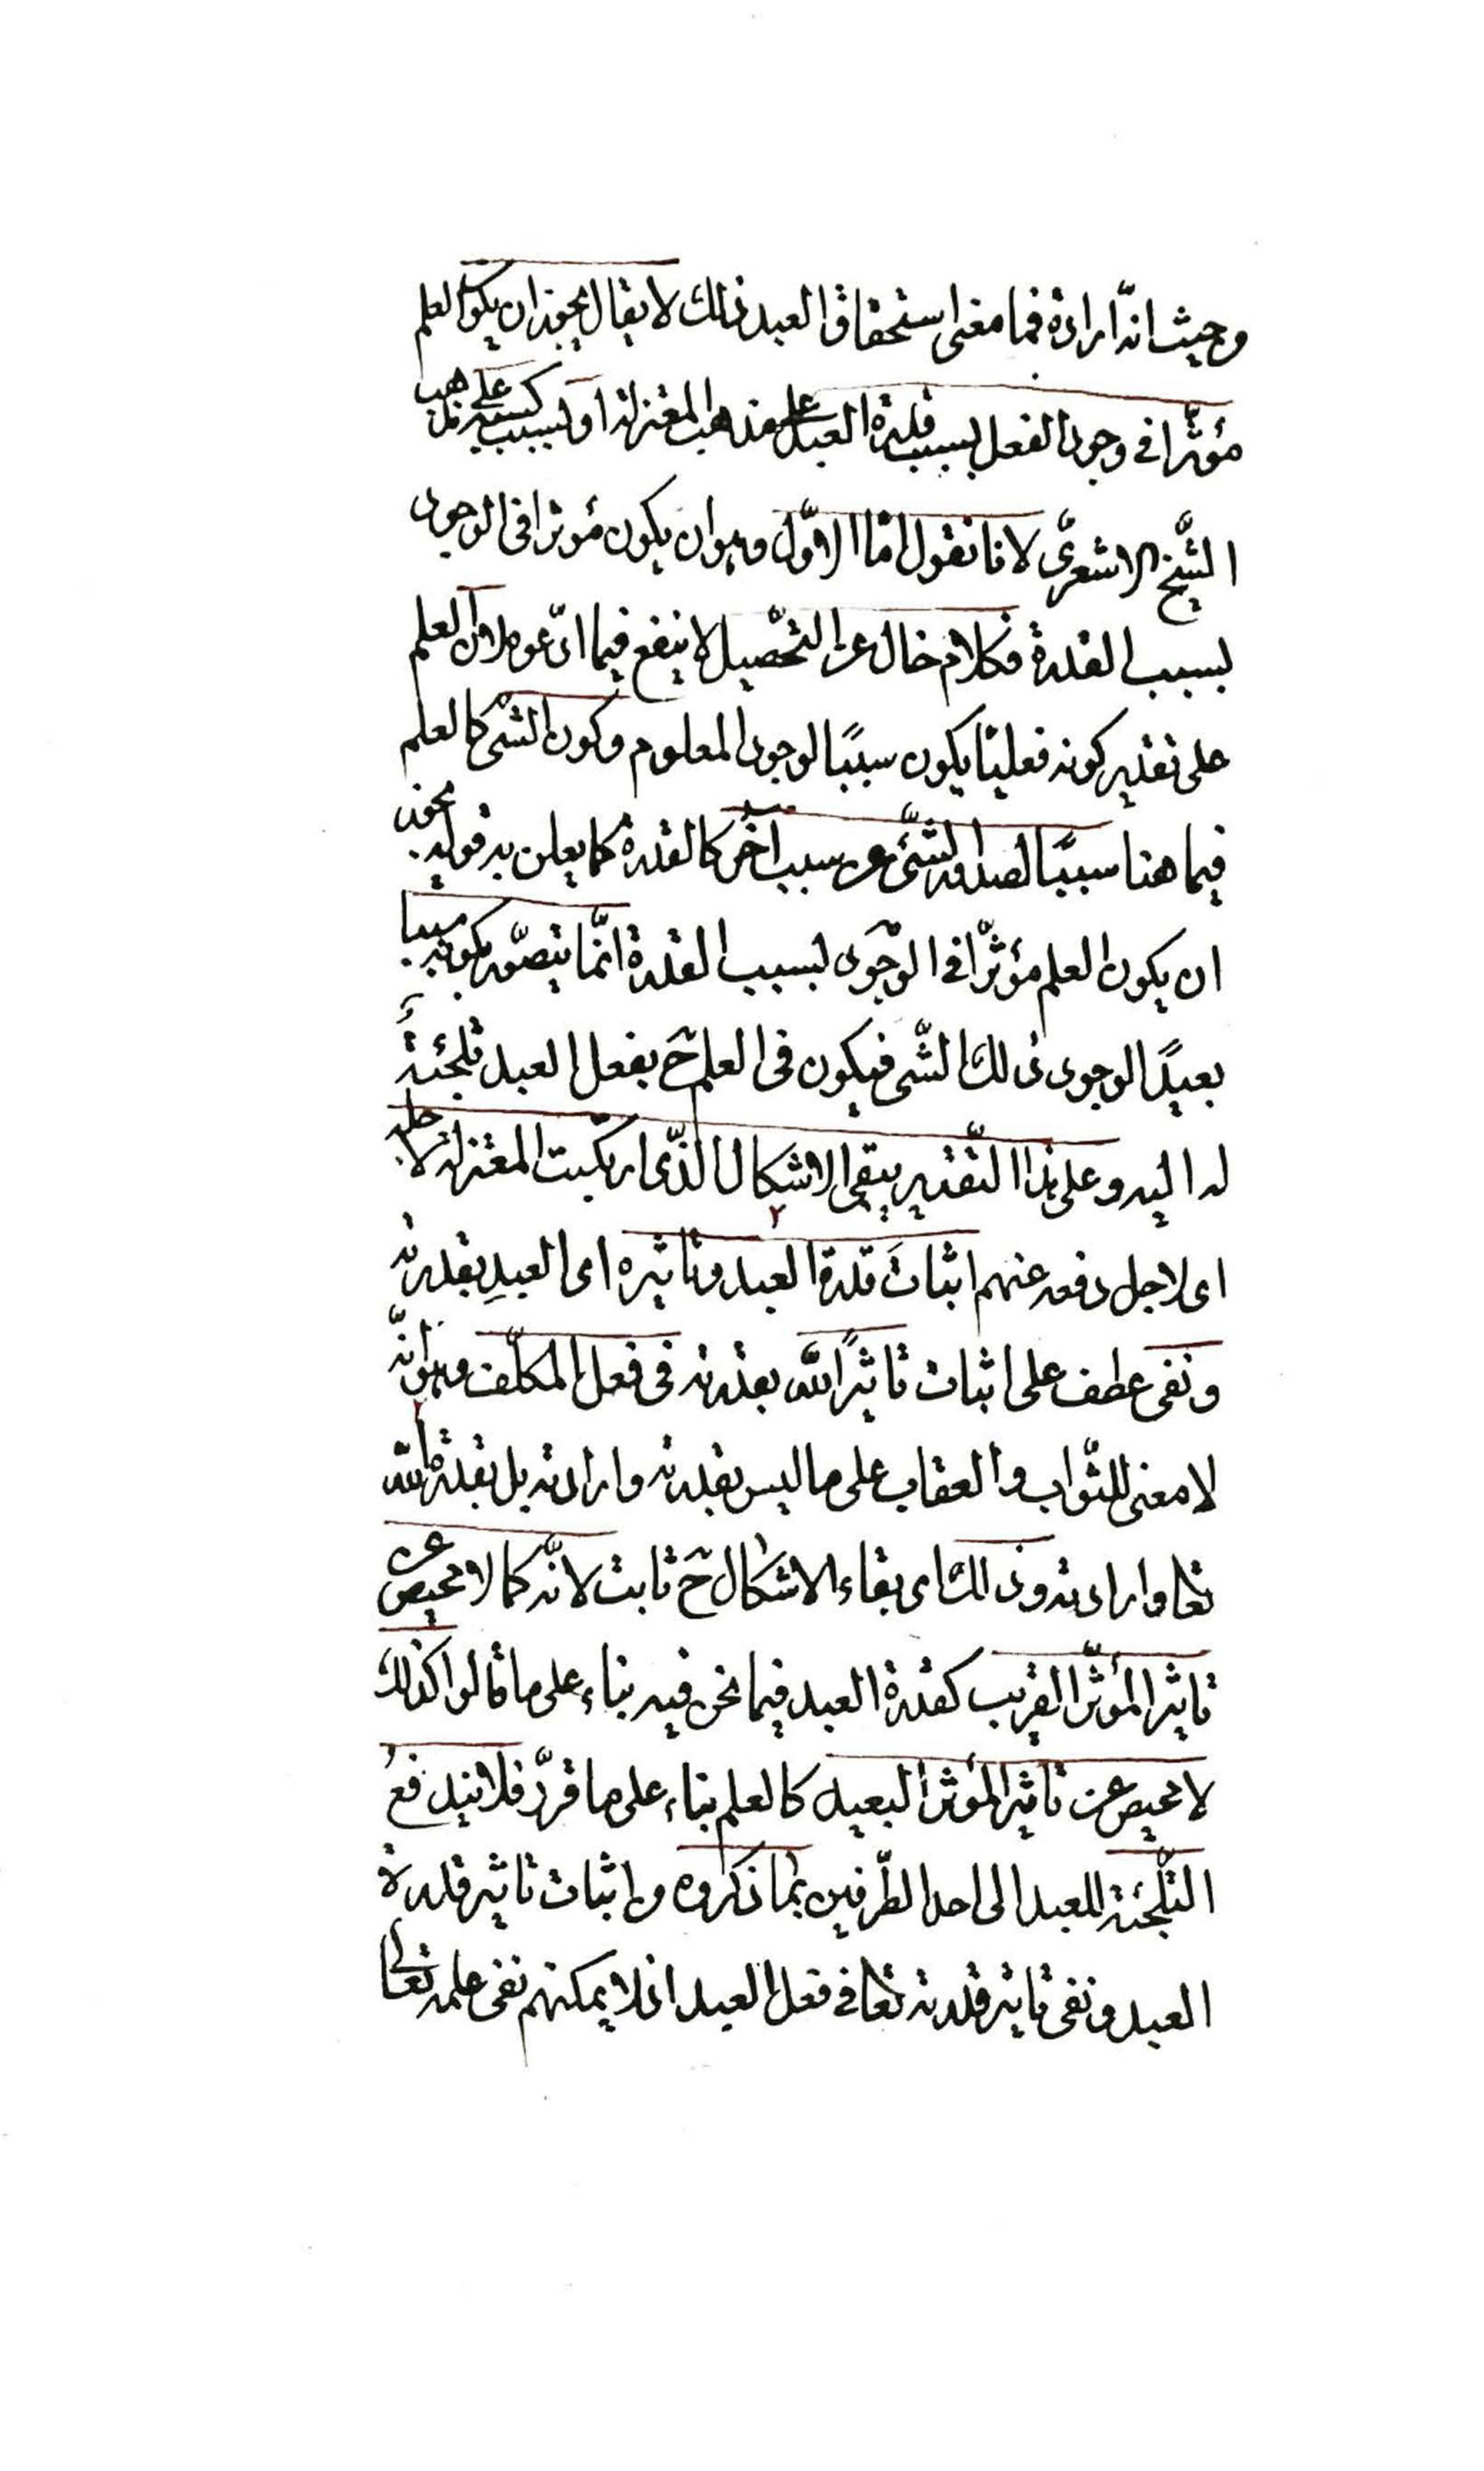 وحيث انّه اراده فما معنى استحقاق العبد ذلك لا يقال يجوز ان يكون العلم
مؤثّرا في وجود الفعل بسبب قدرة العبد على مذهب المعتزلة او بسبب كسبه على مذهب
الشّيخ الاشعرىّ لانا نقول امّا الاوّل وهو ان يكون مؤثرا في الوجود
بسبب القدرة فكلام خال عن التحّصيل لا ينفع فيما ادّعوه لان العلم
على تقدير كونه فعليّا يكون سببًا لوجود المعلوم وكون الشّى كالعلم
فيما هنا سببًا لصدور الشّئ عن سبب اخر كالقدرة كما يعلن به قوله يجوز
ان يكون العلم مؤثّرا في الوجود بسبب القدرة انّما يتصوّر بكونه سببا
بعيدًا لوجود ذلك الشّى فيكون في العلم ح بفعل العبد تلجئةً
له اليه وعلى هذا التّقدير يبقى الاشكال الّذى ارتكبت المعتزلة لاجله
اى لاجل دفعه عنهم اثباتَ قدرة العبد وتاثيره اى العبدِ بقدرته
ونفى عطف على اثبات تاثيرًالله بقدرته في فعل المكلّف وهو انّه
لا معنى للثّواب والعقاب على ما ليس بقدرته وارادته بل بقدرة الله
تعا وارادته وذلك اى بقاء الاشكال ح ثابت لانّه كما لا محيص عن
تاثير المؤثّر القريب كقدرة العبد فيما نحن فيه بناء على ما قالوا كذلك
لا محيص عن تاثير المؤثر البعيد كالعلم بناء على ما قرّر فلا يندفعُ
التّلجئة للعبد الى احد الطّرفين بما ذكروه من اثبات تاثير قدرة
العبد ونفى تاثير قدرته تعا في فعل العبد اذ لا يمكنهم نفى علمه تعالى